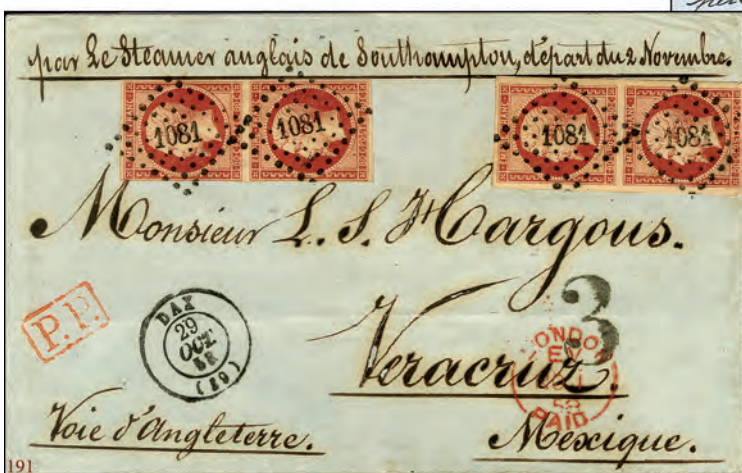 par Le Steamer anglais de Southampton, départ du 2 Novembre.
1081 1081 1081 1081
Monsieur L. S. Hargous.
P.P.
DAX
29
OCT.
58
(39)
3
Veracruz.
LONDON
PAID
Voie d'Angleterre.
Mexique.
191